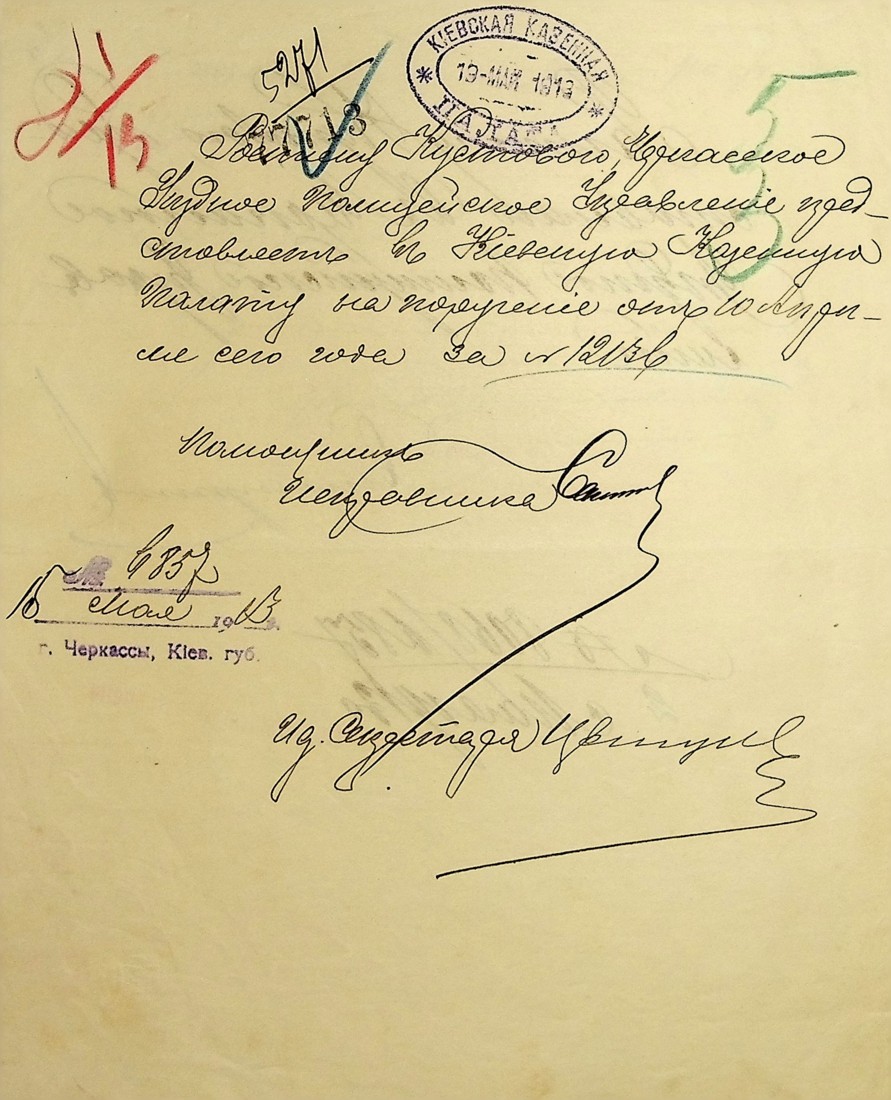 5271
77713
КІЕВСКАЯ КАЗЕННАЯ
19 МАЯ 1913
ПАЛАТА
5
Росписку Кустового, Черкасское
Уѣздное Полицейское Управленіе пред-
ставляетъ въ Кіевскую Казенную
Палату на порученіе отъ 10 Апрѣ-
ля сего года за №
Помощникъ
Исправника
№ 6857
15 Мая 1913 г.
г. Черкассы, Кіев. губ.
И д. Секретаря